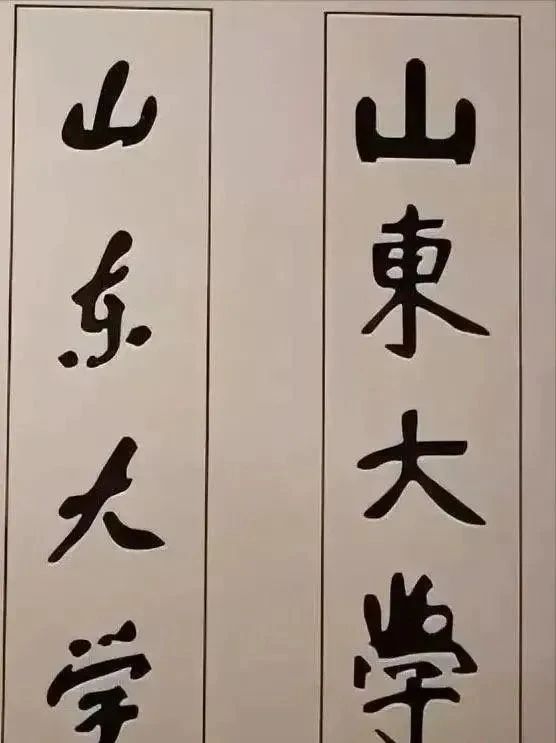 山東大學
山东大学